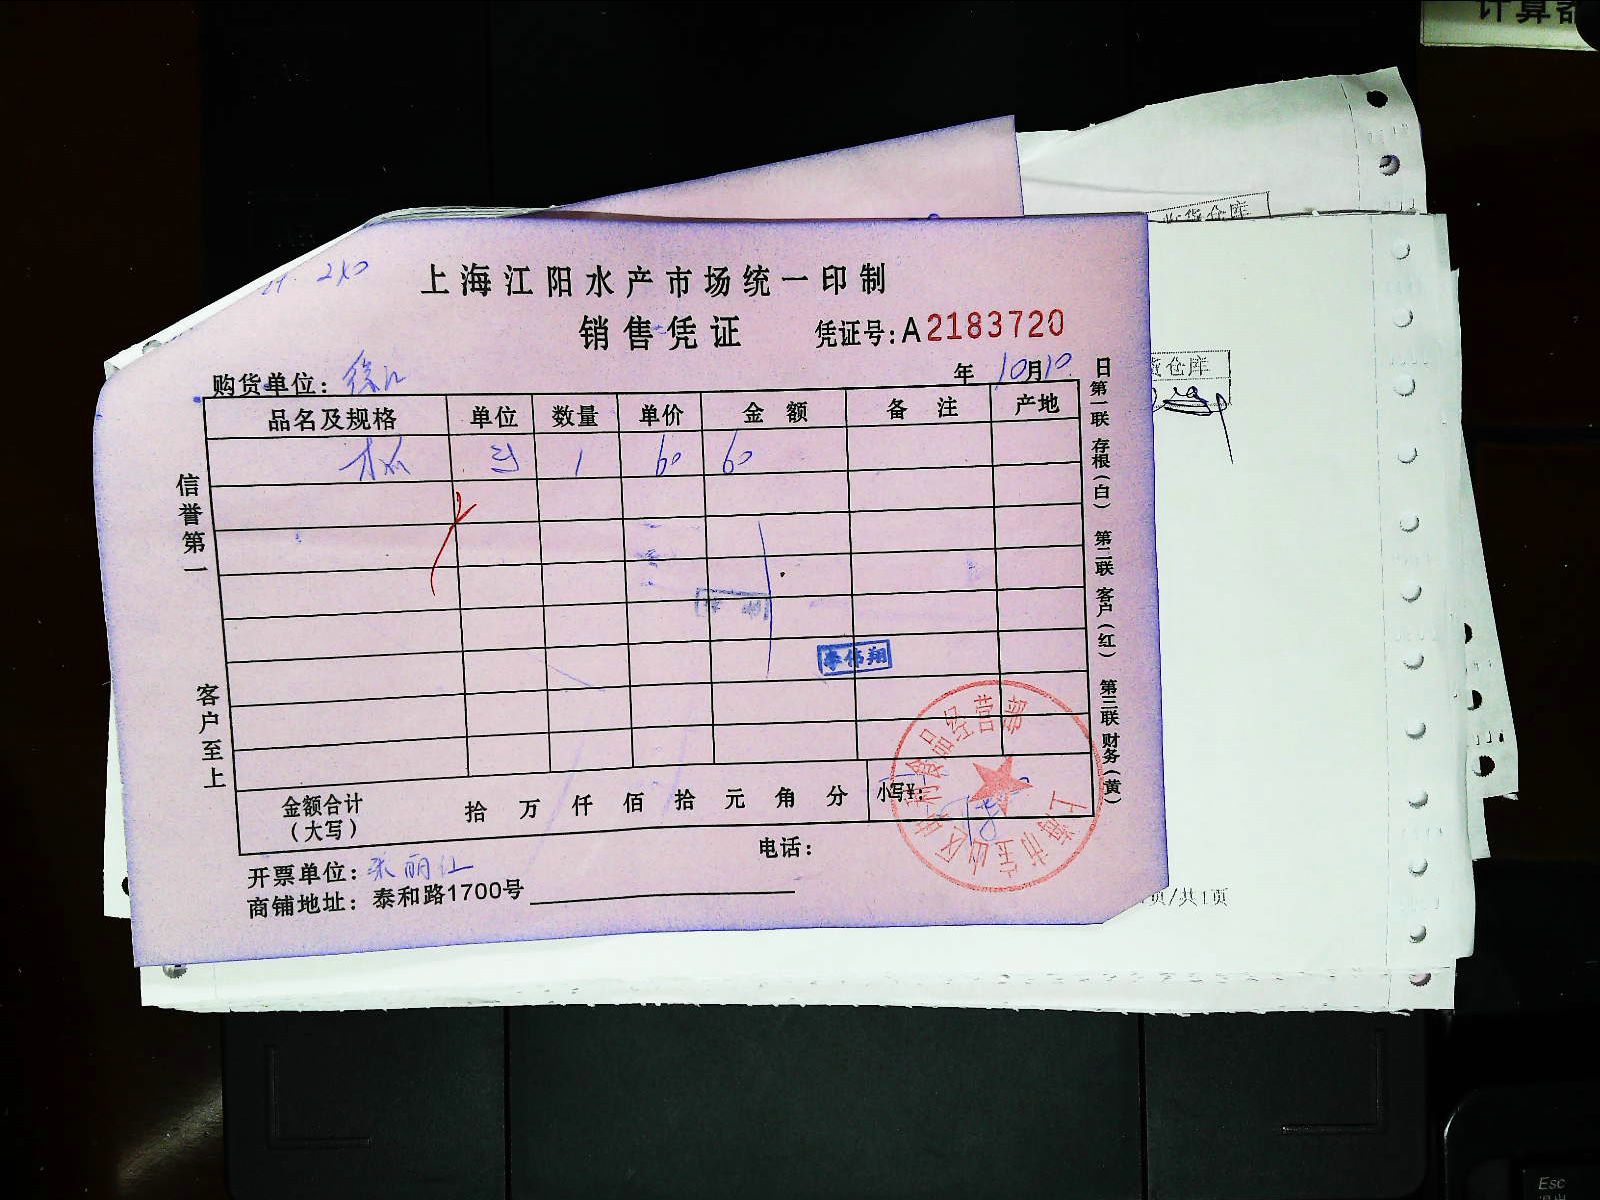 计算器
收货仓库
货仓库
2x0
上海江阳水产市场统一印制
销售凭证
凭证号:A2183720
购货单位:徐汇
年10月10日
品名及规格 单位 数量 单价 金额 备注 产地
1 60 60
信誉第一
客户至上
第一联 存根(白) 第二联 客户(红) 第三联 财务(黄)
李伟翔
金额合计
(大写)
拾 万 仟 佰 拾 元 角 分 小写¥:
电话:
开票单位:朱丽仁
商铺地址:泰和路1700号
页/共1页
Esc